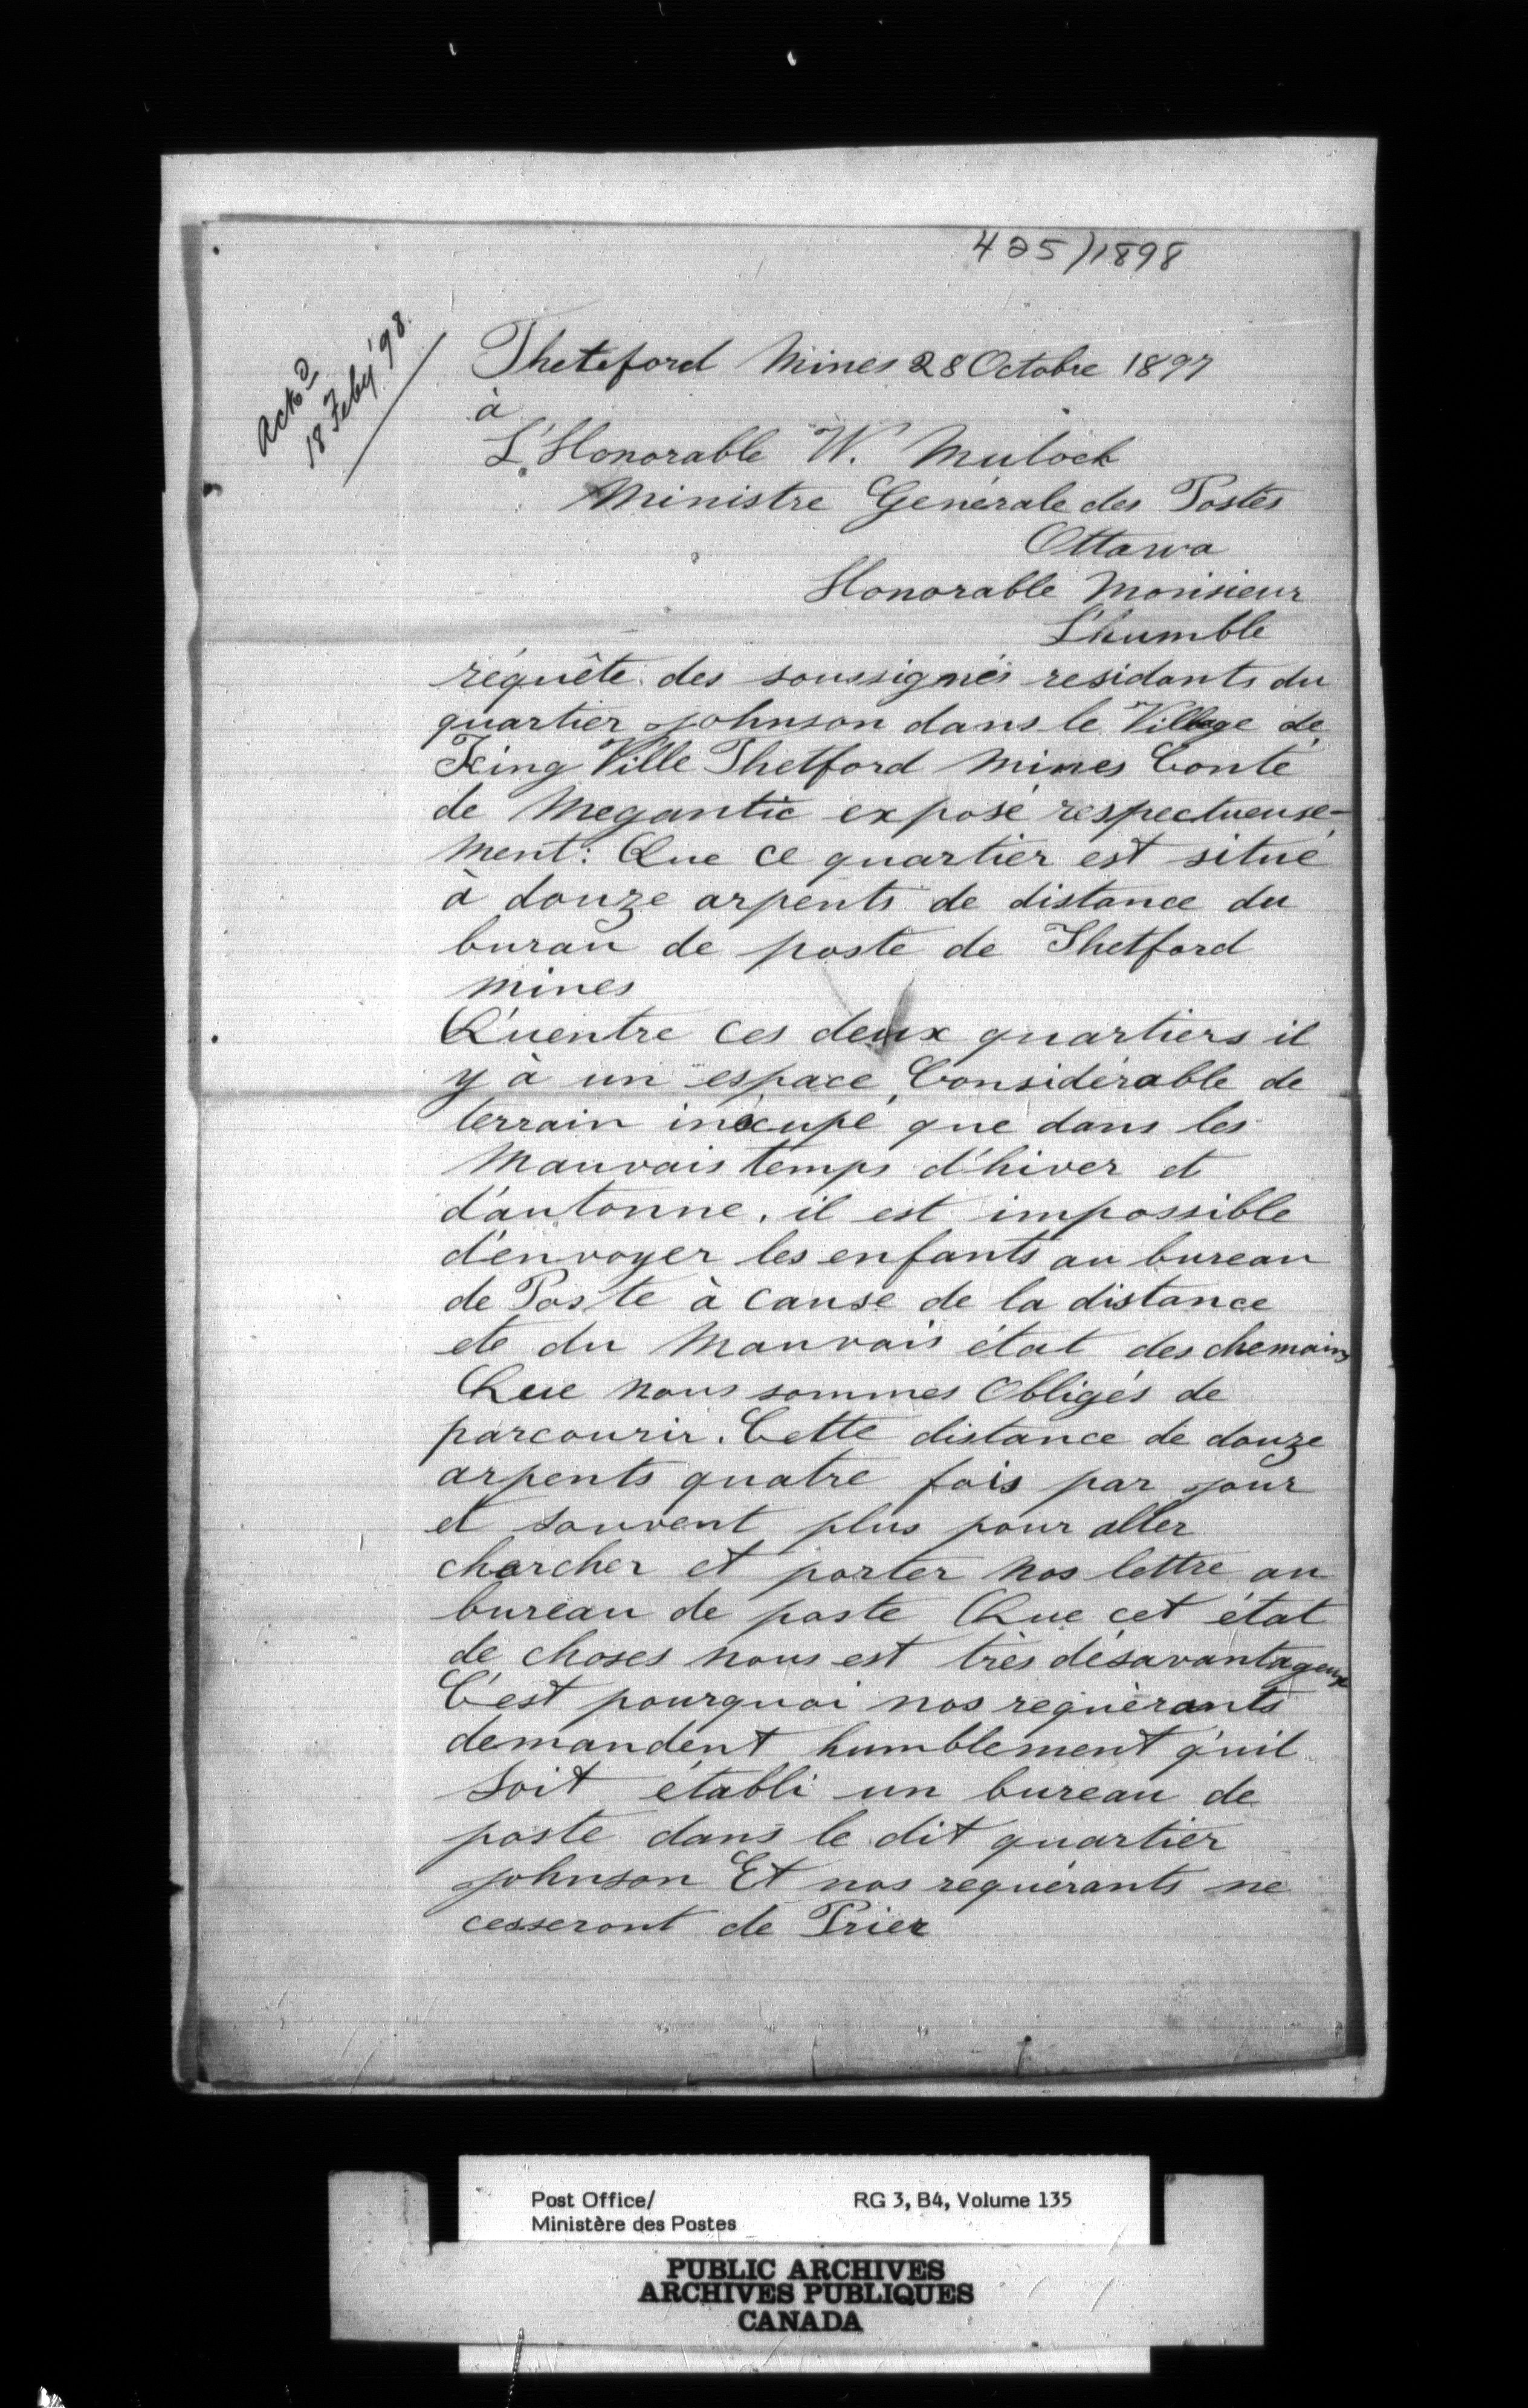 425/1898
Ackd
18 Feby '98.
Theteford Mines 28 Octobre 1897
à
L'Honorable W. Mulock
Ministre Génerale des Postes
Ottawa
Honorable Monisieur
L'humble
réquête des soussignés residants du
quartier Johnson dans le Village de
King Ville Thetford Mines Conté
de Megantic exposé respectueuse-
ment: Que ce quartier est situé
à douze arpents de distance du
burau de poste de Thetford
Mines
Qu'entre ces deux quartiers il
y à un espace, Considérable de
terrain inocupé que dans les
Mauvais temps d'hiver et
d'autonne, il est impossible
d'envoyer les enfants au bureau
de Poste à Cause de la distance
ete du Mauvais état des chemains
Que nous sommes Obligés de
parcourir. Cette distance de douze
arpents quatre fois par jour
et souvent plus pour aller
charcher et porter nos lettre au
bureau de poste Que cet état
de choses nous est très désavantageux
C'est pourquoi nos requèrants
demandent humblement q'uil
soit établi un bureau de
poste dans le dit quartier
Johnson Et nos requérants ne
cesseront de Prier
Post Office/
Ministère des Postes
RG 3, B4, Volume 135
PUBLIC ARCHIVES
ARCHIVES PUBLIQUES
CANADA